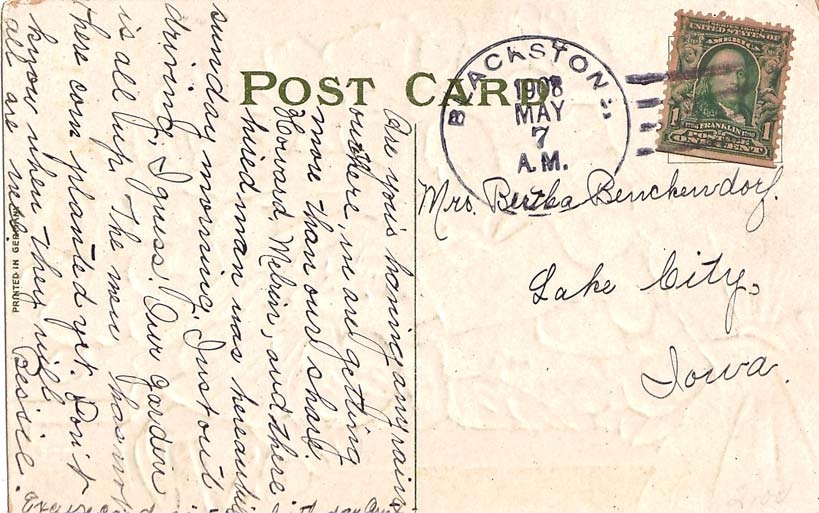 POST CARD
BLACKSTON
1908
MAY
7
A.M.
UNITED STATES OF
AMERICA
1 FRANKLIN 1
POSTAGE
ONE CENT
Mrs. Bertha Benckendorf.
Lake City,
Iowa.
Are you's having any rain
out there, we are getting
more than our share.
Howard, Melvin, and there
hired man was here
sunday morning, Just out
driving, I guess. Our garden
is all up. The men has not
there corn planted yet. Don't
know when they will
all are well. Bessie.
PRINTED IN GERMANY